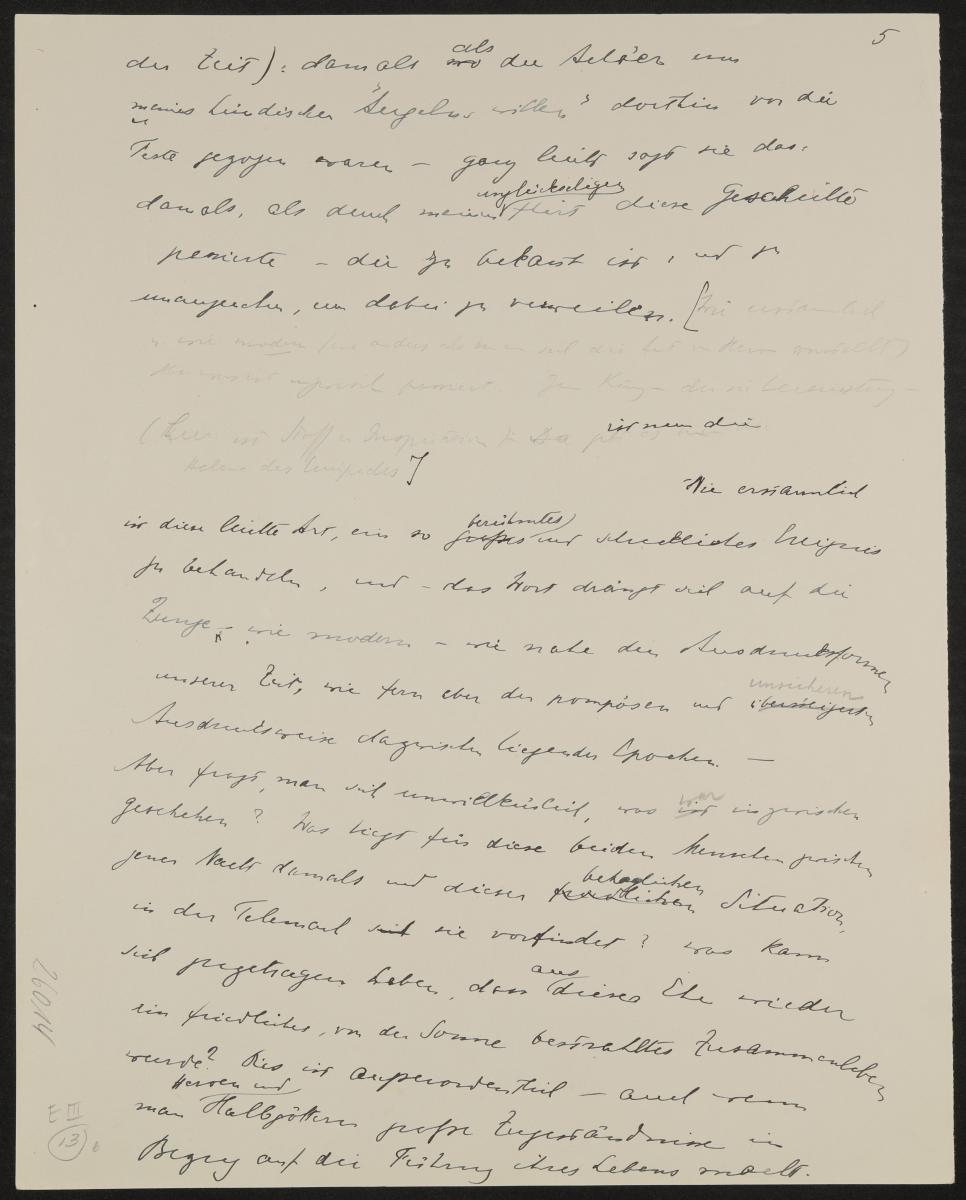 5
der Zeit): damals als die Achäer um
meines hündischen "Angesichts willen" dorthin vor die
Feste gezogen waren – ganz leicht sagt sie das:
damals, als durch meinen unglückseligen Flirt diese Geschichte
passierte – die zu bekannt ist, und zu
unangenehm, um dabei zu verweilen. [Wie erstaunlich
u. wie modern
(Hier ist Stoff u. Inspiration
ist nun die
Helena des Euripides]
Wie erstaunlich
ist diese leichte Art, ein so berühmtes und schreckliches Ereignis
zu behandeln, und – das Wort drängt sich auf die
Zunge – wie modern – wie nahe den Ausdrucksformen
unserer Zeit, wie fern aber der pompösen und unsicheren
Ausdrucksweise dazwischen liegender Epochen. —
Aber fragt man sich unwillkürlich, was war inzwischen
geschehen? Was liegt für diese beiden Menschen zwischen
jener Nacht damals und dieser behaglichen Situation,
in der Telemach sie vorfindet? was kann
sich zugetragen haben, dass aus dieser Ehe wieder
ein friedliches, von der Sonne bestrahltes Zusammenleben
wurde? Dies ist außerordentlich – auch wenn
man Heroen und Halbgöttern große Zugeständnisse in
Bezug auf die Führung ihres Lebens macht.
26014
E III
13
b